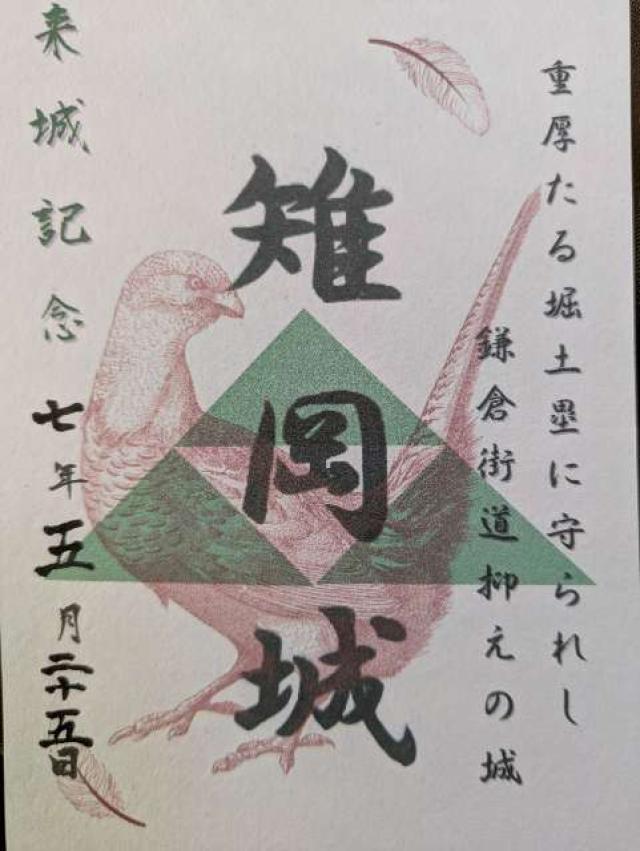 重厚たる堀土塁に守られし
鎌倉街道抑えの城
雉岡城
来城記念 七年五月二十五日